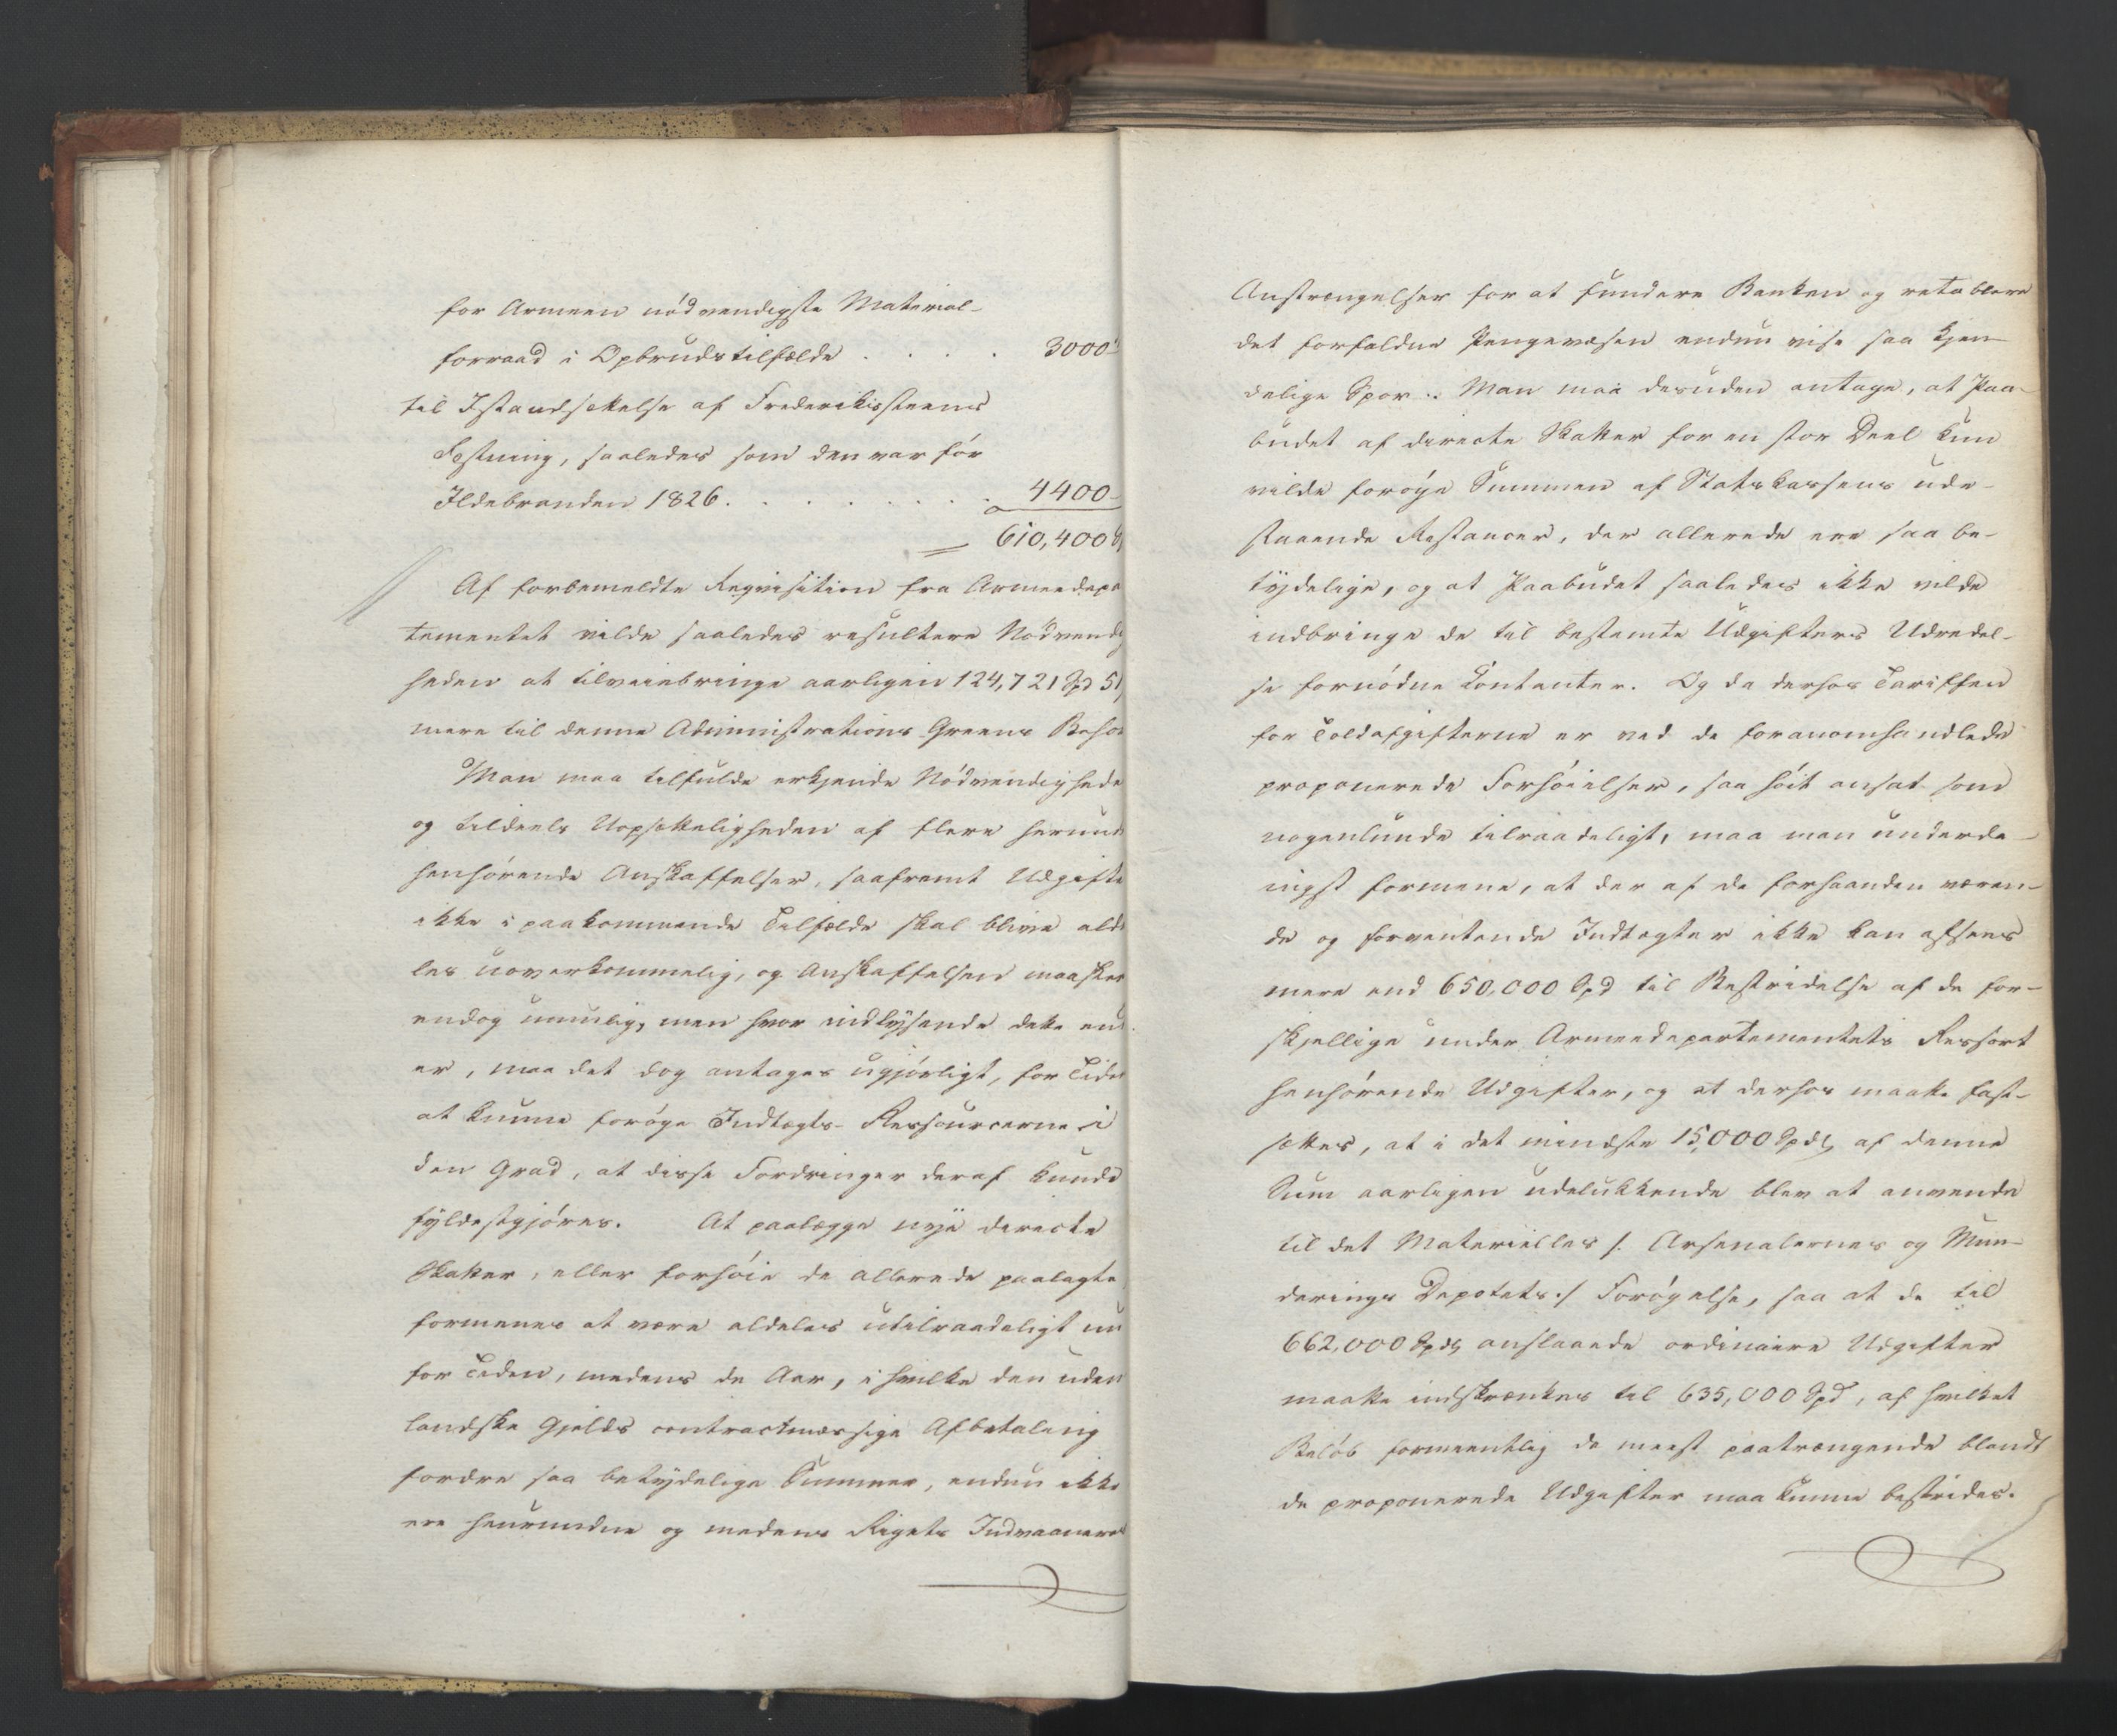 for Armeen nödvendigste Material-
forraad i Opbrudstilfælde . . . . 3000 -
til Istandsættelse af Frederikssteens
Fæstning, saaledes som den var för
Ildebranden 1826 . . . . . . . 4400 -
= 610,400
Af forbemeldte Reqvisition fra Armeedepa
tementet vilde saaledes resultere Nödvendig
heden at tilveiebringe aarligen 124,721 Spd 51
mere til denne Administrations Greens Behov
Man maa tilfulde erkjende Nödvendighede
og tildeels Uopsætteligheden af flere herund
henhörende Anskaffelser, saafremt Udgifte
ikke i paakommende Tilfælde skal blive alde
les uoverkommelig, og Anskaffelsen maaskee
endog umulig, men hvor indlysende dette end
er, maa det dog antages ugjörligt, for Tide
at kunne foröge Indtægts-Ressourcerne i
den Grad, at disse Fordringer deraf kunde
fyldestgjöres. At paalægge nye directe
Skatter, eller forhöie de allerede paalagte
formenes at være aldeles utilraadeligt nu
for Tiden, medens de Aar, i hvilke den uden
landske Gjelds contractmæssige Afbetaling
fordre saa betydelige Summer, endnu ikke
ere henrundne og medens Rigets Indvaaneres
Anstrængelser for at fundere Banken og retablere
det forfaldne Pengevæsen endnu vise saa kjen-
delige Spor. Man maa desuden antage, at Paa-
budet af directe Skatter for en stor Deel kun
vilde foröge Summen af Statskassens ude-
staaende Restancer, der allerede ere saa be-
tydelige, og at Paabudet saaledes ikke vilde
indbringe de til bestemte Udgifters Udredel-
se fornödne Contanter. Og da derhos Tariffen
for Toldafgifterne er ved de foranomhandlede
proponerede Forhöielser, saa höit ansat som
nogenlunde tilraadeligt, maa man underda-
nigst formene, at der af de forhaanden væren-
de og forventende Indtægter ikke kan afsees
mere end 650,000 Spd til Bestridelse af de for-
skjellige under Armeedepartementets Ressort
henhörende Udgifter, og at derhos maatte fast-
sættes, at i det mindste 15,000 Spdlr af denne
Sum aarligen udelukkende blev at anvende
til det Materielles /: Arsenalernes og Mun-
derings Depotets :/ Forögelse, saa at de til
662,000 Spdlr anslaaede ordinaire Udgifter
maatte indskrænkes til 635,000 Spd, af hvilket
Belöb formeentlig de meest paatrængende blandt
de proponerede Udgifter maa kunne bestrides.